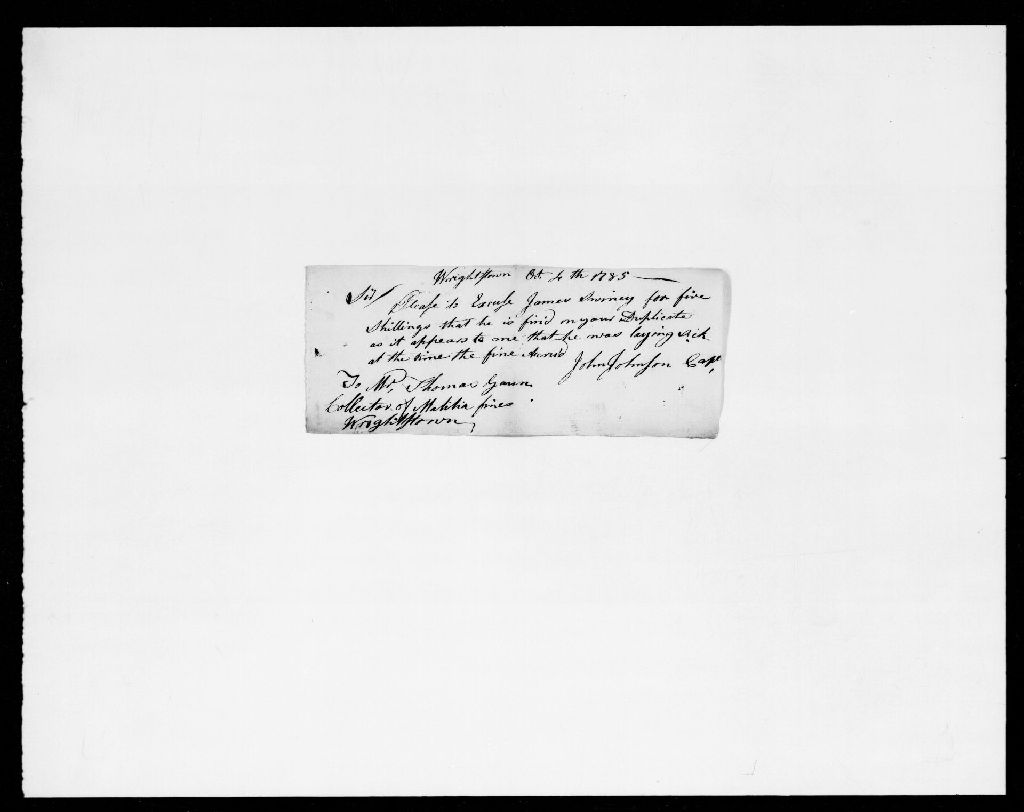 Wrightstown Oct 4th 1785
Sir/ Please to Excuse James Swiney for five
Shillings that he is find on your Duplicate
as it appears to me that he was laying Sick
at the time the fine
John Johnson Capt.
To Mr. Thomas
Collector of Malitia fines
Wrightstown